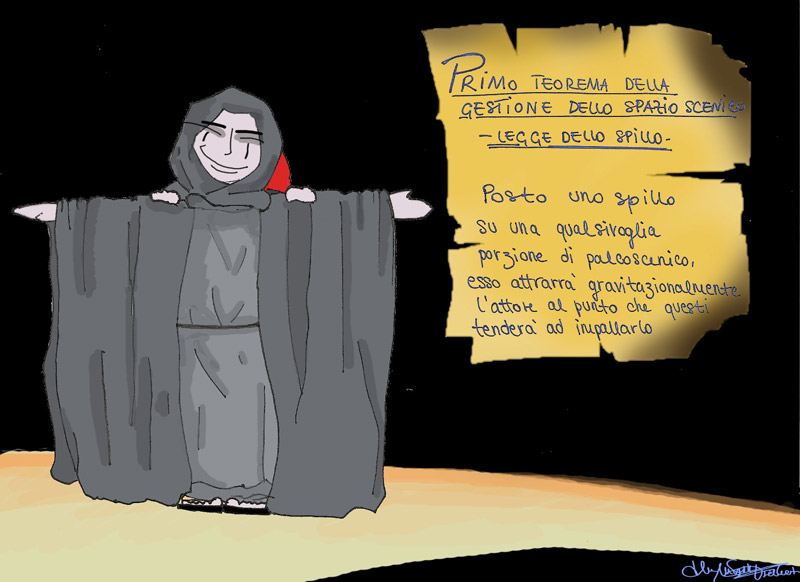 PRIMO TEOREMA DELLA
GESTIONE DELLO SPAZIO SCENICO
- LEGGE DELLO SPILLO -
Posto uno spillo
su una qualsivoglia
porzione di palcoscenico,
esso attrarrà gravitazionalmente
l'attore al punto che questi
tenderà ad impallarlo